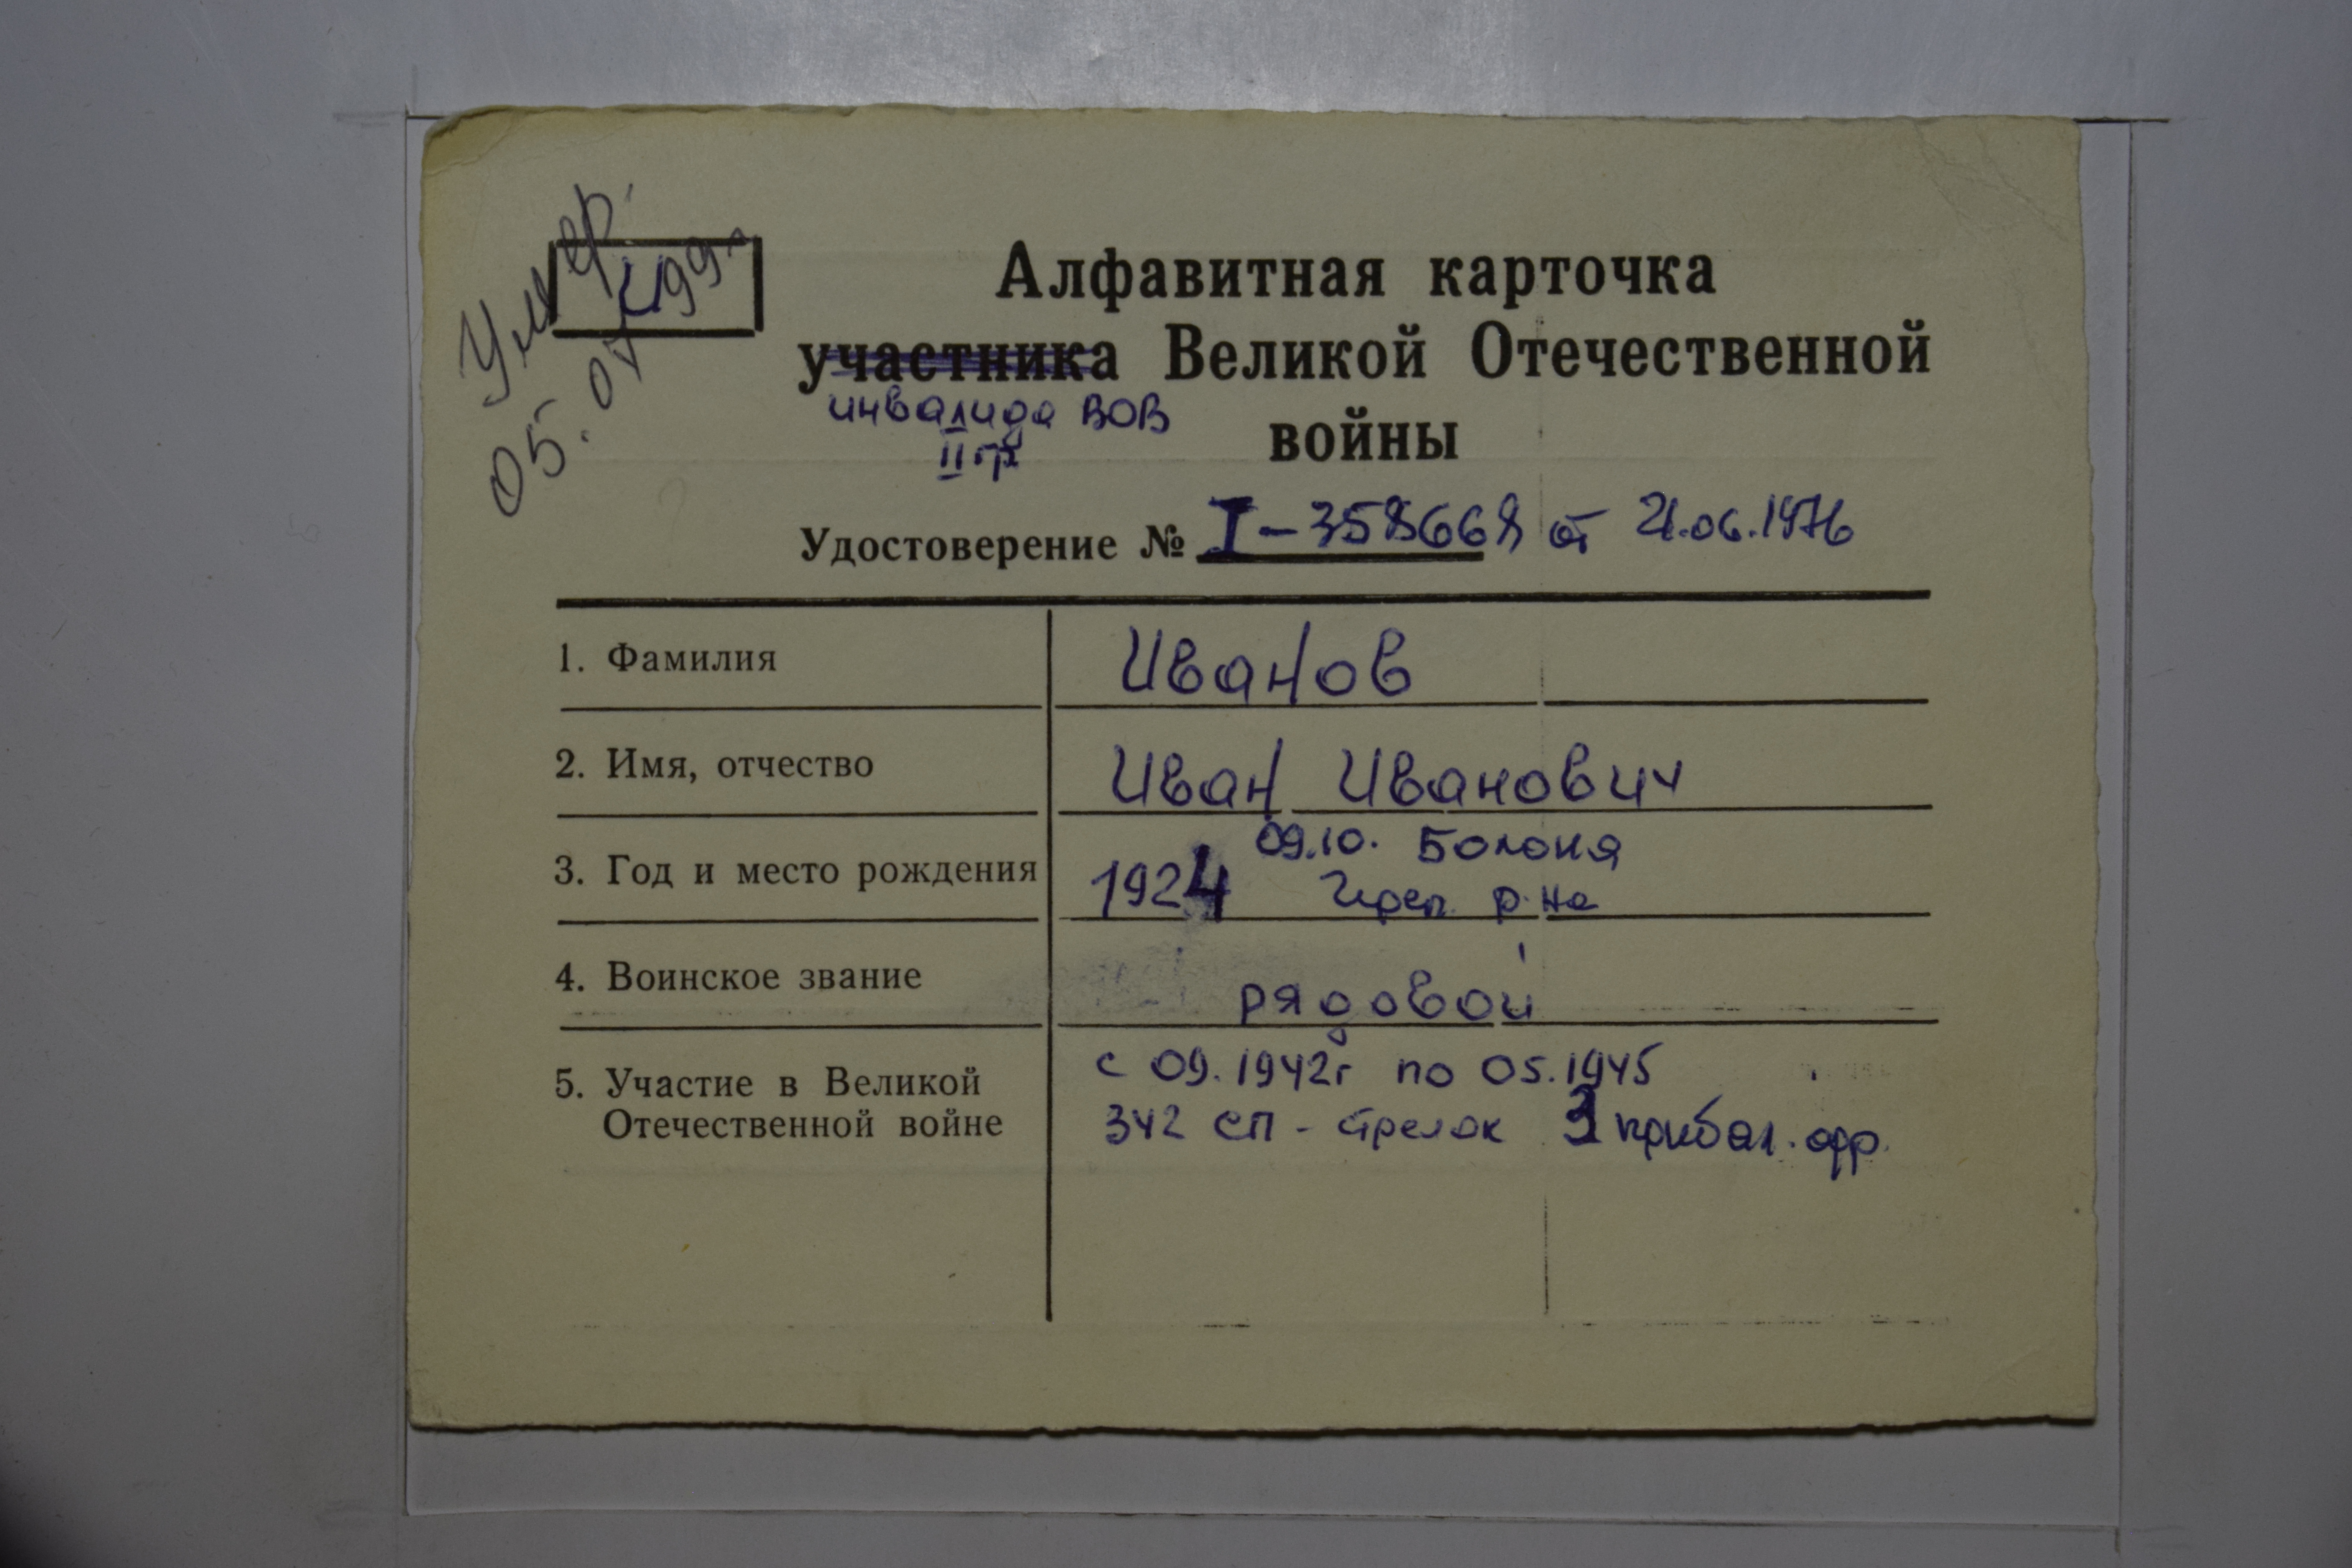 Умер
05.07. 99г
И
Алфавитная карточка
участника Великой Отечественной
инвалида ВОВ
II гр
войны
Удостоверение № I-358668 от 21.06.1976
1. Фамилия Иванов
2. Имя, отчество Иван Иванович
09.10. Болоня
3. Год и место рождения 1924 Череп. р-на
4. Воинское звание рядовой
с 09.1942г по 05.1945
5. Участие в Великой
Отечественной войне 342 сп - стрелок 3 прибал. фр.